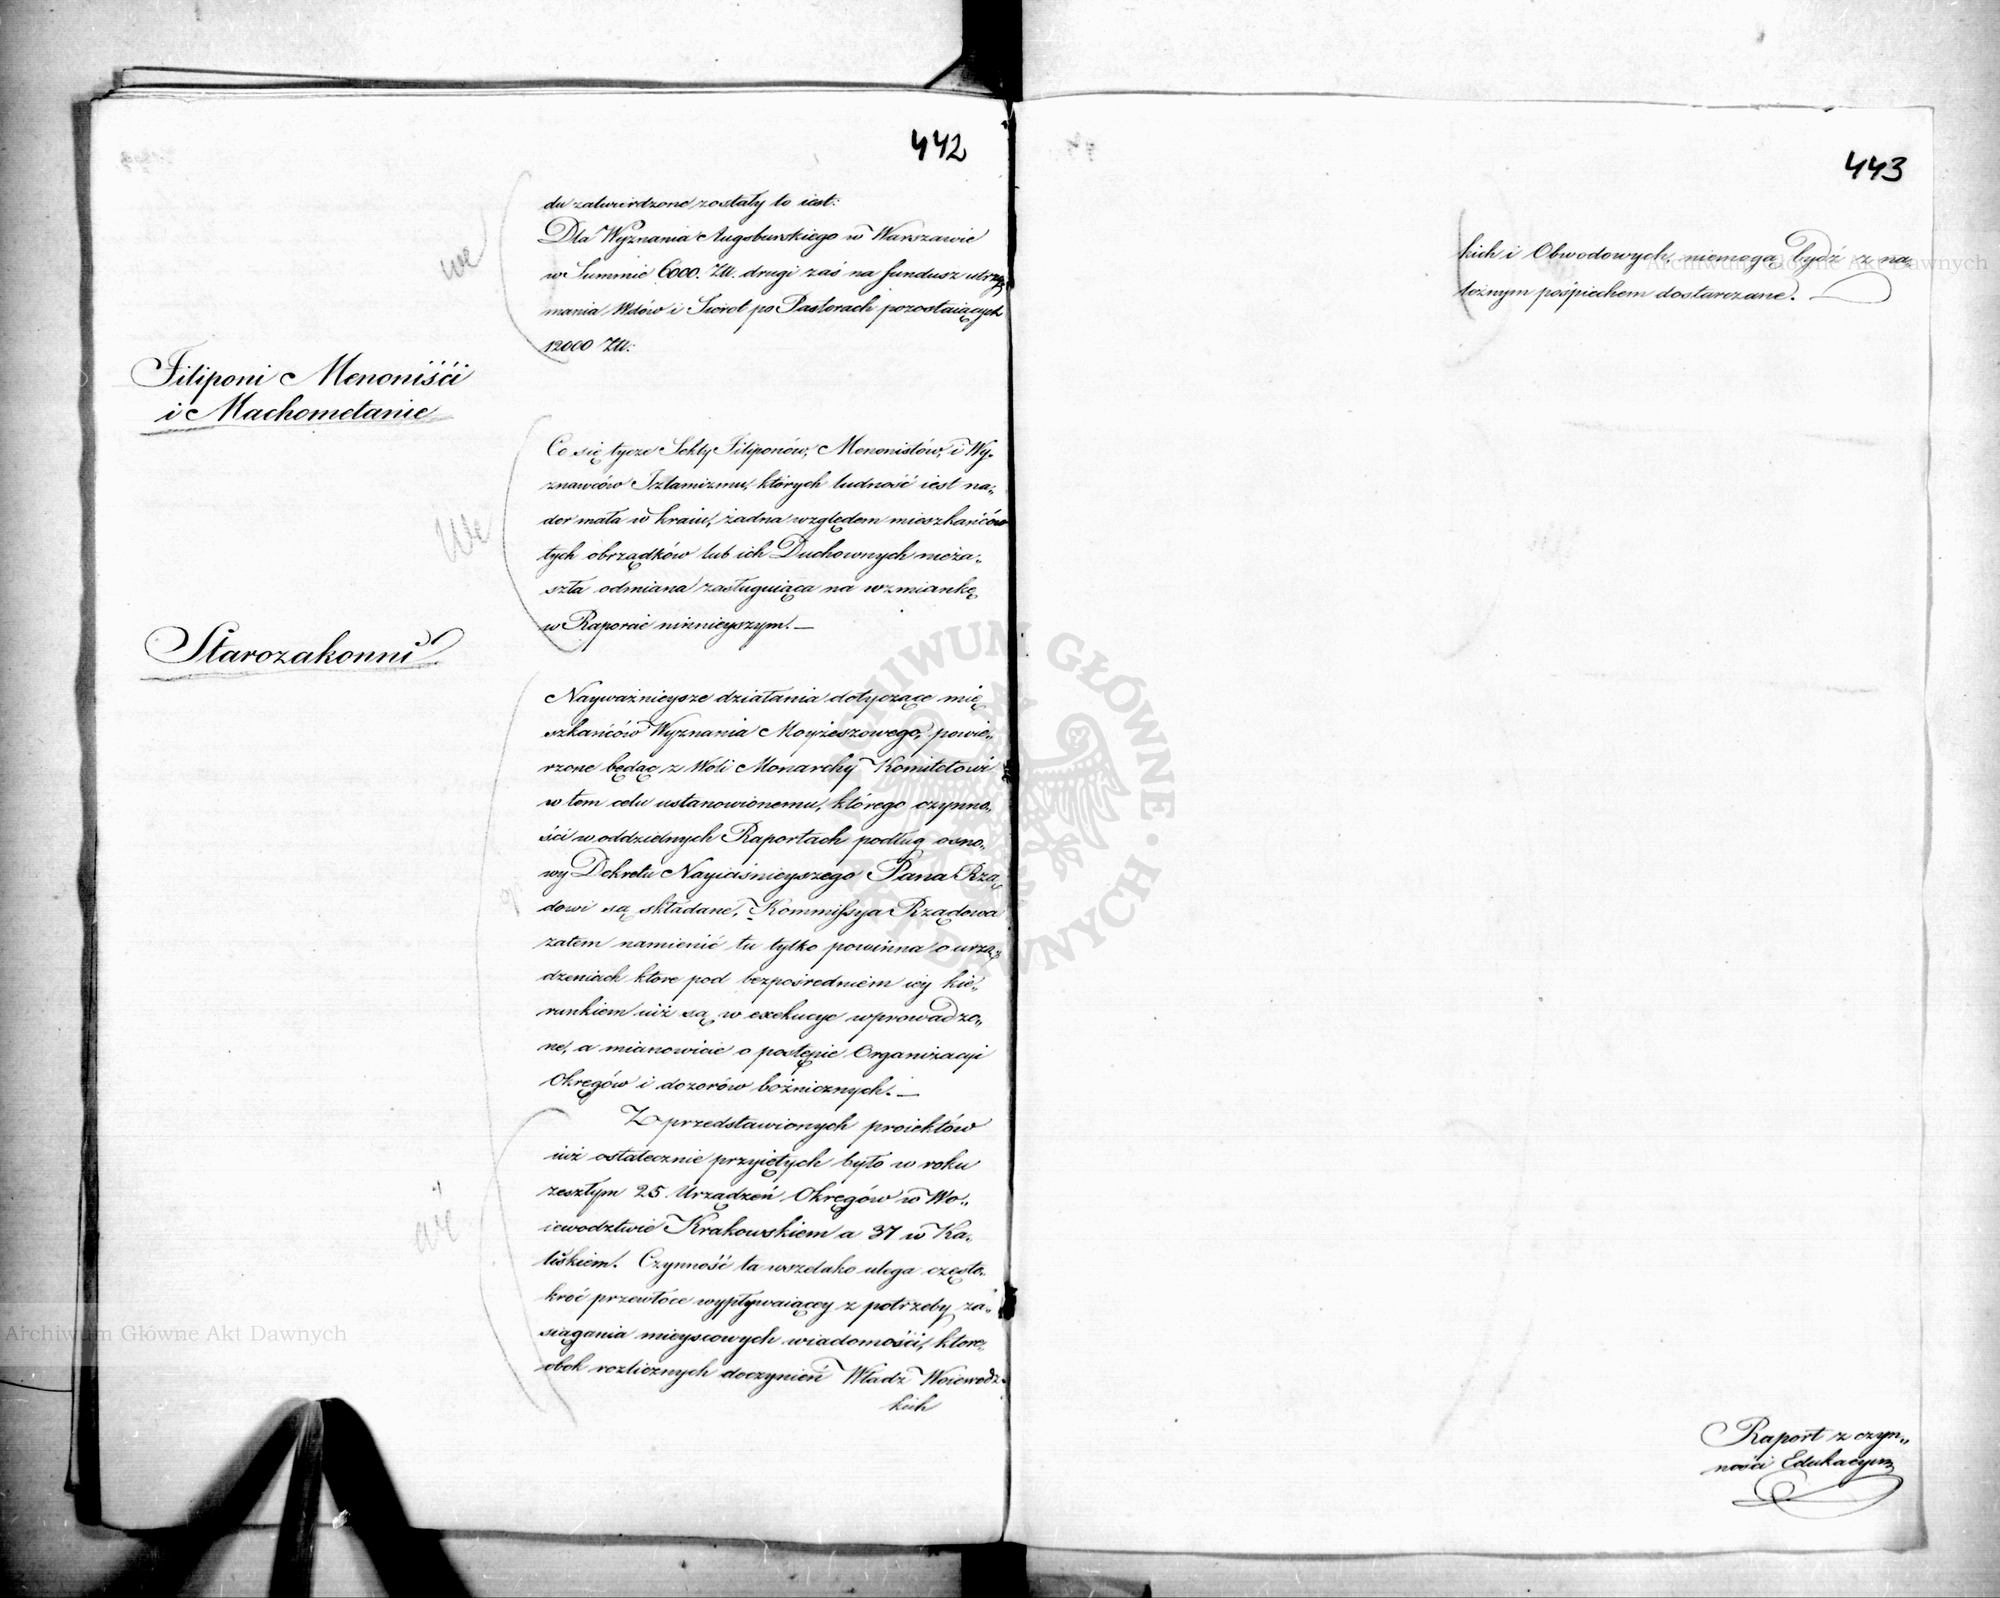 442
du zatwierdzone zostały to iest:
Dla Wyznania Augsburskiego w Warszawie
w Summie 6000. Złł. drugi zaś na fundusz utrzy,
mania Wdów i Sierot po Pastorach pozostaiących
12000 Złł:
we
Filiponi Menoniśći
i Machometanie
Co się tycze Sekty Filiponów, Menonistów, i Wy,
znawców Izlamizmu, których ludność iest na,
der mała w kraiu, żadna względem mieszkańców
tych obrządków lub ich Duchownych nieza,
szła odmiana zasługuiąca na wzmiankę
w Raporcie ninnieyszym. —
We
Starozakonni
Nayważnieysze działania dotyczące mie,
szkańców Wyznania Moyżeszowego, powie,
rzone będąc z Woli Monarchy Komitetowi
w tem celu ustanowionemu, którego czynno,
ści w oddzielnych Raportach podług osno,
wy Dekretu Nayiaśnieyszego Pana Rzą,
dowi są składane, Kommissya Rządowa
zatem namienić tu tylko powinna o urzą,
dzeniach które pod bezpośredniem iey kie,
runkiem iuż są w exekucye wprowadzo,
ne, a mianowicie o postępie Organizacyi
Okręgów i dozorów bożnicznych. —
Z przedstawionych proiektów
iuż ostatecznie przyiętych było w roku
zeszłym 25 Urządzeń Okręgów w Wo,
iewodztwie Krakowskiem a 37 w Ka,
liskiem. Czynność ta wszelako ulega często,
kroć przewłoce wypływaiącey z potrzeby za,
siągania mieyscowych wiadomości, które,
obok rozlicznych doczynień Władz Woiewodz,
kich
443
kich i Obwodowych, niemogą bydź z na,
leżnym pośpiechem dostarczane. —
Raport z czyn,
ności Edukacyin
Archiwum Główne Akt Dawnych
Archiwum Główne Akt Dawnych
ARCHIWUM GŁÓWNE AKT DAWNYCH